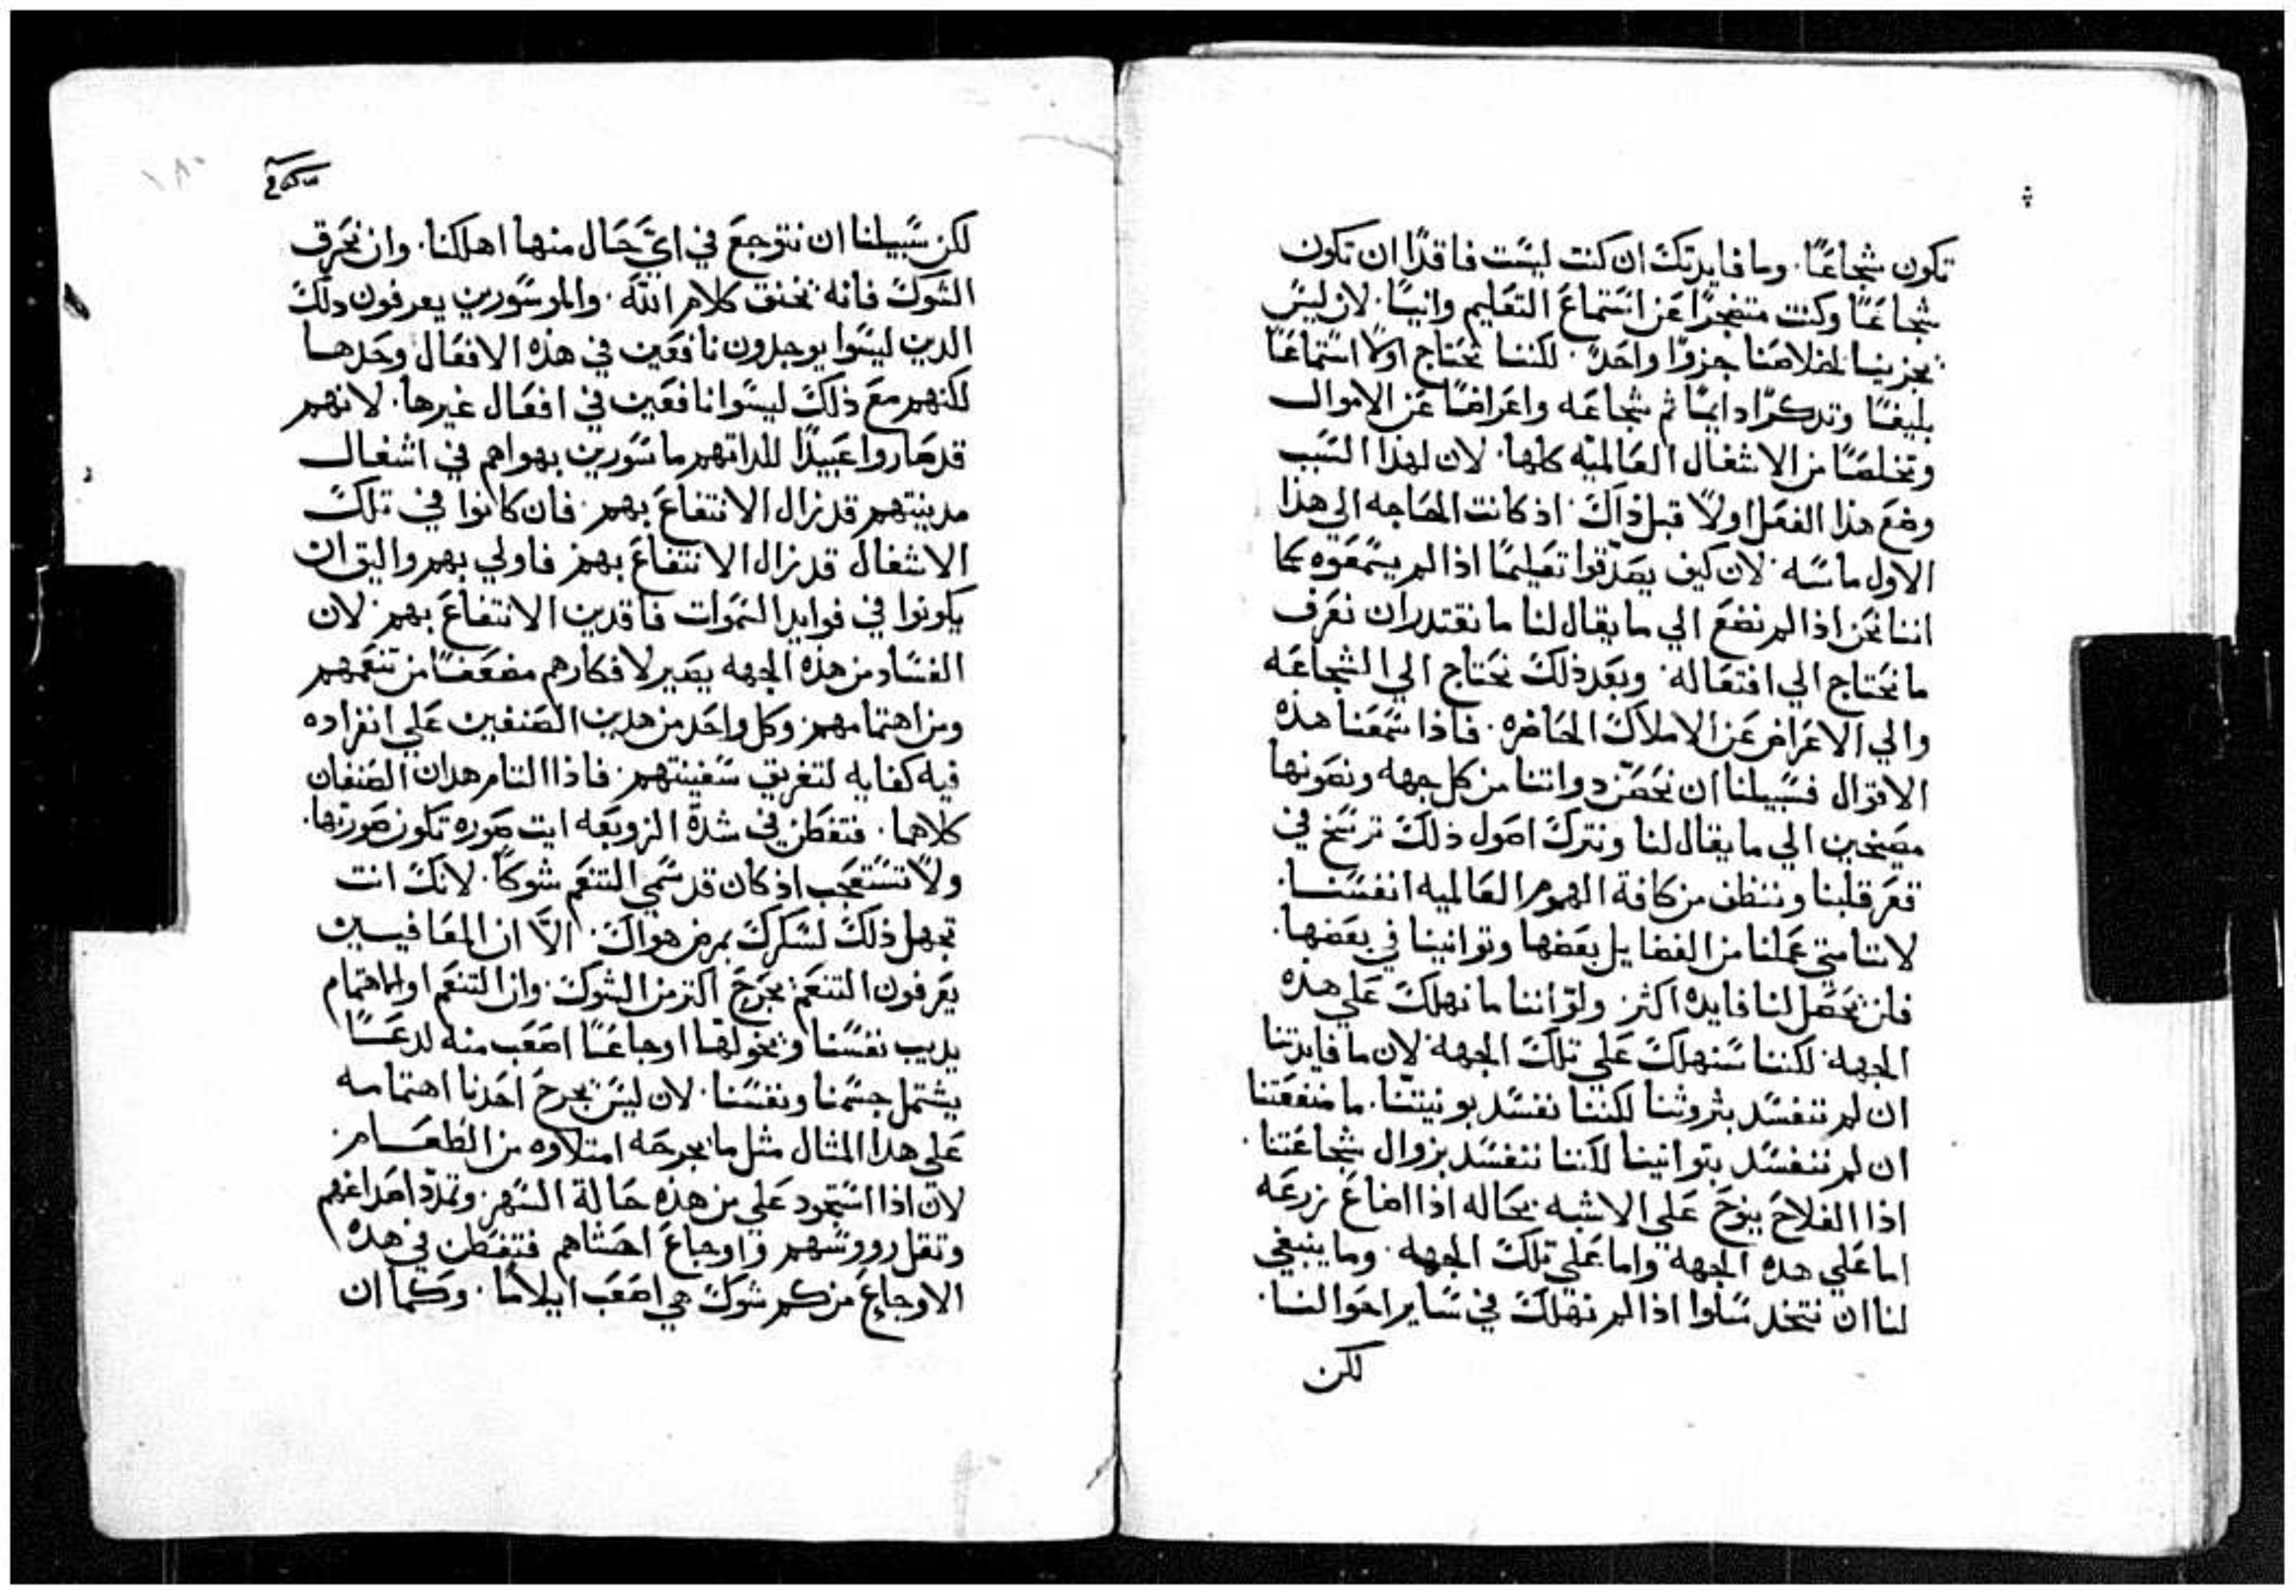 تكون شجاعًا. وما فايدتك ان كنت ليست فاقدًا ان تكون
شجاعًا وكنت متضجرًا عن استماع التعليم وانيًا. لان ليس
يجزينا لخلاصنا جزوًا واحدً. لكننا نحتاج اولًا استماعًا
بليغًا وتدكرًا دايمًا ثم شجاعه واعراضًا عن الاموال
وتخلصًا من الاشغال العالميه كلها. لان لهذا السبب
وضع هذا الفعل اولًا قبل ذاك. اذ كانت الحاجه الي هذا
الاول ماسه. لان كيف يصدقوا تعليمًا اذا لم يسمعوه كما
اننا نحن اذا لم نضع الي ما يقال لنا ما نقتدر ان نعرف
ما نحتاج الي افتعاله. وبعد ذلك نحتاج الي الشجاعه
والي الاعراض عن الاملاك الحاضره. فاذا سمعنا هذه
الاقوال فسبيلنا ان نحصن دواتنا من كل جهه ونصونها
مصيخين الي ما يقال لنا ونترك اصول ذلك ترسخ في
قعر قلبنا وننظف من كافة الهموم العالميه انفسنا.
لاننا متي عملنا من الفضايل بعضها وتوانينا في بعضها.
فلن تحصل لنا فايده اكثر ولو اننا ما نهلك علي هده
الجهه. لكننا سنهلك علي تلك الجهه لان ما فايدتنا
ان لم ننفسد بثروتنا لكننا نفسد بونيتنا. ما منفعتنا
ان لم ننفسد بتوانينا لكننا ننفسد بزوال شجاعتنا.
اذا الفلاح ينوح علي الاشبه بحاله اذا اضاع زرعه
اما علي هده الجهه واما علي تلك الجهه. وما ينبغي
لنا ان نتخد سلوا اذا لم نهلك في ساير احوالنا.
لكن
١٨٠
لكن سبيلنا ان نتوجع في ايّ حال منها اهلكنا. وان نحرق
الشوك فانه يخنق كلام الله. والموسورين يعرفون دلك
الدين ليسوا يوجدون نافعين في هذه الافعال وحدها
لكنهم مع ذلك ليسوا نافعين في افعال غيرها. لانهم
قد صاروا عبيدًا للداتهم ماسورين بهواهم في اشغال
مدينتهم قد زال الانتفاع بهم. فان كانوا في تلك
الاشغال قد زال الانتفاع بهم فاولي بهم واليق ان
يكونوا في فوايد السموات فاقدين الانتفاع بهم. لان
الفساد من هذه الجهه يصير لافكارهم مضعفًا من تنعمهم
ومن اهتمامهم وكل واحد من هدين الصنفين علي انفراده
فيه كفايه لتغريق سفينتهم. فاذا التام هدان الصنفان
كلاهما. فتفطن في شدة الزوبعه ايت صوره تكون صورتها.
ولا تستعجب اذ كان قد سمي التنعم شوكًا. لانك انت
تجهل ذلك لسكرك بمرض هواك. الّا ان المعافيين
يعرفون التنعم يجرح اكتر من الشوك وان التنعم او الاهتمام
يديب نفسنا ويخولها اوجاعًا اصعب منه لدعًا
يشتمل جسمنا ونفسنا. لان ليس يجرح احدنا اهتمامه
علي هدا المثال مثل ما يجرحه امتلاوه من الطعام.
لان اذا استحود علي من هذه حالة السهر وتمدّد اصداغهم
وتقل رووسهم واوجاع احشاهم فتفطن في هده
الاوجاع من كم شوك هي اصعب ايلامًا. وكما ان